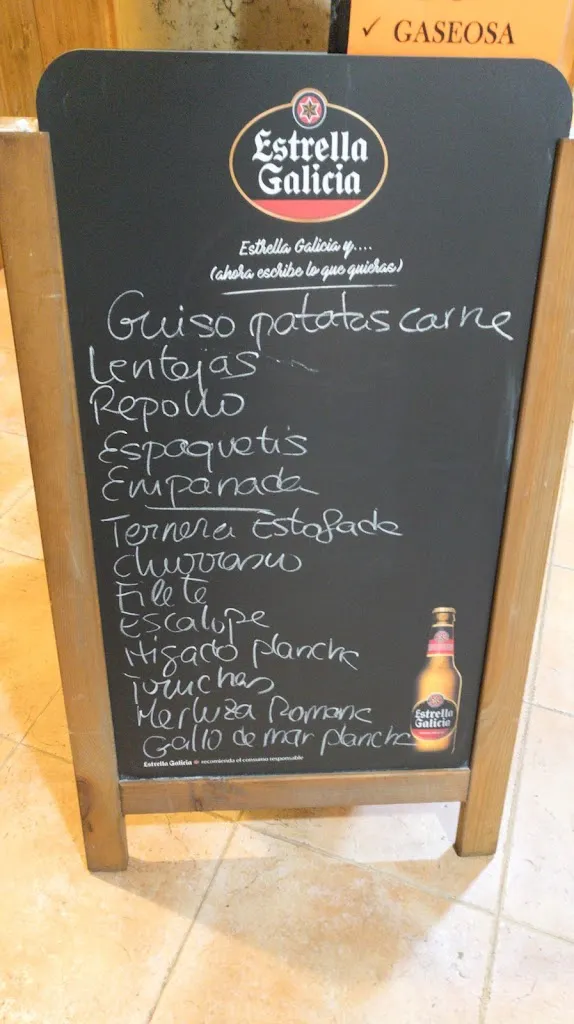 ✓ GASEOSA
Estrella
Galicia
Estrella Galicia y....
(ahora escribe lo que quieras)
Guiso patatas carne
Lentejas
Repollo
Espaguetis
Empanada
Ternera Estofada
Churrasco
Filete
Escalope
Higado plancha
Truchas
Merluza Romana
Gallo de mar plancha
Estrella
Galicia
Estrella Galicia recomienda el consumo responsable